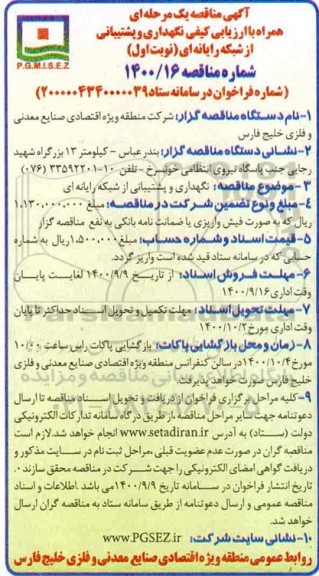 آگهی مناقصه یک مرحله ای
همراه با ارزیابی کیفی نگهداری و پشتیبانی
از شبکه رایانه ای (نوبت اول)
P.G.M.I.S.E.Z
شماره مناقصه ۱۴۰۰/۱۶
(شماره فراخوان در سامانه ستاد ۲۰۰۰۰۰۴۳۴۰۰۰۰۳۹)
۱-نام دستگاه مناقصه گزار: شرکت منطقه ویژه اقتصادی صنایع معدنی
و فلزی خلیج فارس
۲-نشانی دستگاه مناقصه گزار: بندرعباس - کیلومتر ۱۳ بزرگراه شهید
رجایی جنب پاسگاه نیروی انتظامی خونسرخ - تلفن ۱۰-۳۳۵۹۲۲۰۱ (۰۷۶)
۳-موضوع مناقصه: نگهداری و پشتیبانی از شبکه رایانه ای
۴-مبلغ و نوع تضمین شرکت در مناقصه: مبلغ ۱،۱۳۰،۰۰۰،۰۰۰
ریال که به صورت فیش واریزی یا ضمانت نامه بانکی به نفع مناقصه گزار
۵-قیمت اسناد و شماره حساب: مبلغ ۱،۵۰۰،۰۰۰ ریال به شماره
حسابی که در سامانه ستاد قید شده است واریز گردد.
۶-مهلت فروش اسناد: از تاریخ ۱۴۰۰/۹/۹ لغایت پایان
وقت اداری ۱۴۰۰/۹/۱۶
۷-مهلت تحویل اسناد: مهلت تکمیل و تحویل اسناد حداکثر تا پایان
وقت اداری مورخ ۱۴۰۰/۱۰/۲
۸-زمان و محل بازگشایی پاکات: بازگشایی پاکات راس ساعت ۱۰:۰۰
مورخ ۱۴۰۰/۱۰/۴ در سالن کنفرانس منطقه ویژه اقتصادی صنایع معدنی و فلزی
خلیج فارس صورت خواهد پذیرفت.
۹-کلیه مراحل برگزاری فراخوان از دریافت و تحویل اسناد مناقصه تا ارسال
دعوتنامه جهت سایر مراحل مناقصه، از طریق درگاه سامانه تدارکات الکترونیکی
دولت (ستاد) به آدرس www.setadiran.ir انجام خواهد شد. لازم است
مناقصه گران در صورت عدم عضویت قبلی، مراحل ثبت نام در سایت مذکور و
دریافت گواهی امضای الکترونیکی را جهت شرکت در مناقصه محقق سازند.
تاریخ انتشار فراخوان در سامانه تاریخ ۱۴۰۰/۹/۹ می باشد. اطلاعات و اسناد
مناقصه عمومی و ارسال دعوتنامه از طریق سامانه ستاد به مناقصه گران ارسال
خواهد شد.
۱۰-نشانی سایت شرکت: www.PGSEZ.ir
روابط عمومی منطقه ویژه اقتصادی صنایع معدنی و فلزی خلیج فارس